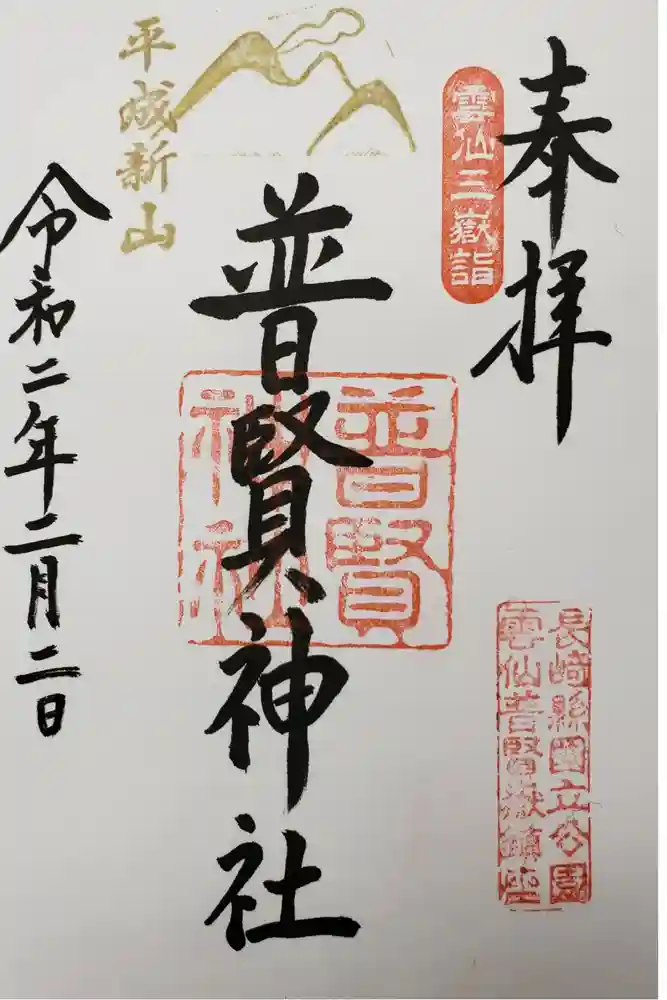 奉拝
雲仙三嶽詣
長崎縣国立公園
雲仙普賢嶽鎮座
普賢神社
普賢
神社
平成新山
令和二年二月二日